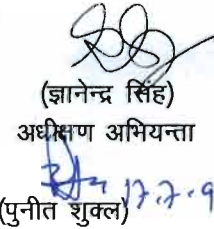 (ज्ञानेन्द्र सिंह)
अधीक्षण अभियन्ता
17.7.9
(पुनीत शुक्ल)